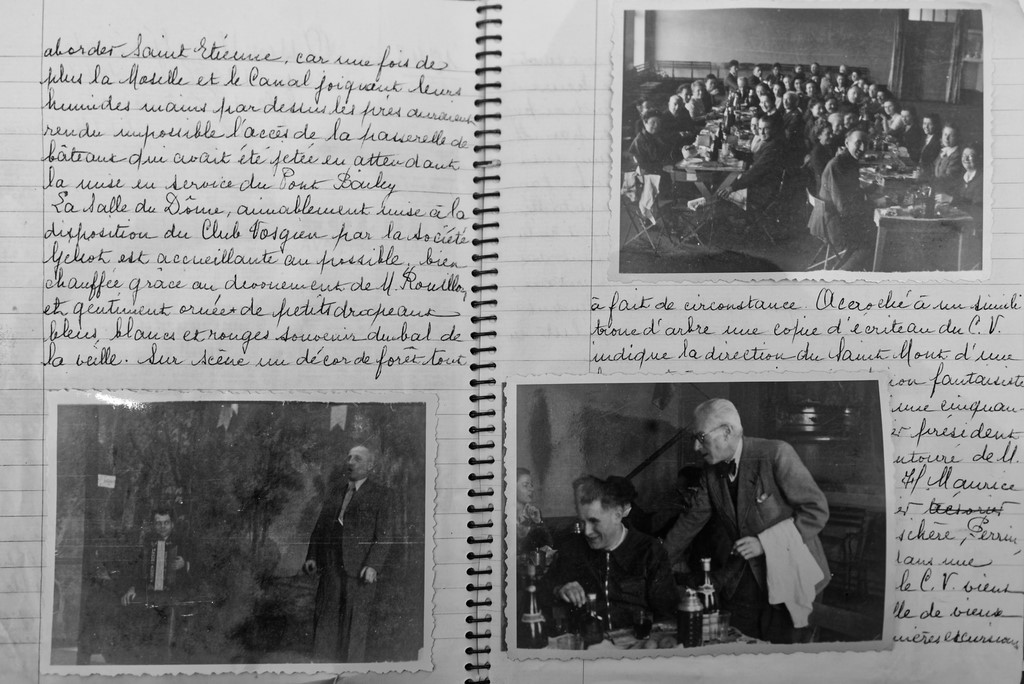 aborder Saint Etienne, car une fois de
plus la Moselle et le Canal joignant leurs
humides mains par dessus les prés auraient
rendu impossible l'accès de la passerelle de
bâteaux qui avait été jetée en attendant
la mise en service du Pont
La Salle du Dôme, aimablement mise à la
disposition du Club Vosgien par la société
est accueillante au possible, bien
chauffée grâce au devouement de M.
et gentiment ornée de petits drapeaux
bleus, blancs et rouges souvenir du bal de
la veille. Sur scène un décor de forêt tout
à fait de circonstance. Accroché à un simili
tronc d'arbre une copie d'écriteau du C.V.
indique la direction du Saint Mont d'une
fantaisiste
une cinquan-
président
ntouré de M.
H Maurice
er
schère, Perrin
dans une
le C.V. vient
lle de vieux
mières excursions